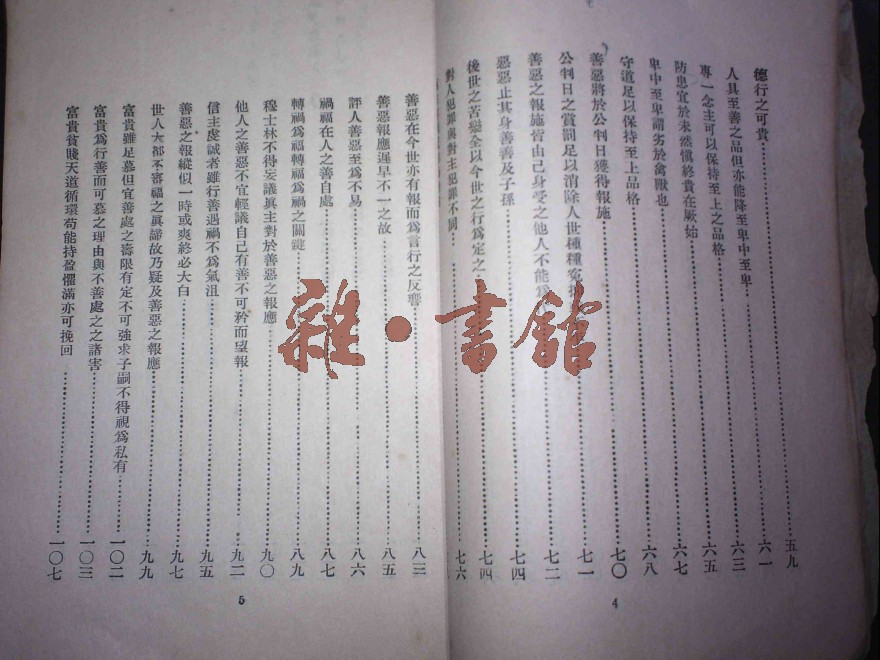 德行之可貴……五九
人具至善之品但亦能降至卑中至卑……六一
專一念主可以保持至上之品格……六三
防患宜於未然愼終貴在厥始……六五
卑中至卑謂劣於禽獸也……六七
守道足以保持至上品格……六八
善惡將於公判日獲得報施……七〇
公判日之賞罰足以消除人世種種寃……七一
善惡之報施皆由己身受之他人不能……七二
惡惡止其身善善及子孫……七四
後世之苦樂全以今世之行爲定之……七四
對人犯罪與對主犯罪不同……七六
4
善惡在今世亦有報而爲言行之反響……八三
善惡報應遲早不一之故……八五
評人善惡至爲不易……八六
禍福在人之善自處……八七
轉禍爲福轉福爲禍之關鍵……八九
穆士林不得妄議眞主對於善惡之報應……九〇
他人之善惡不宜輕議自己有善不可矜而望報……九二
信主虔誠者雖行善遇禍不爲氣沮……九五
善惡之報縱似一時或爽終必大白……九七
世人大都不審福之眞諦故乃疑及善惡之報應……九九
富貴雖足慕但宜善處之壽限有定不可強求子嗣不得視爲私有……一〇二
富貴爲行善而可慕之理由與不善處之之諸害……一〇三
富貴貧賤天道循環苟能持盈懼滿亦可挽回……一〇七
5
雜·書館